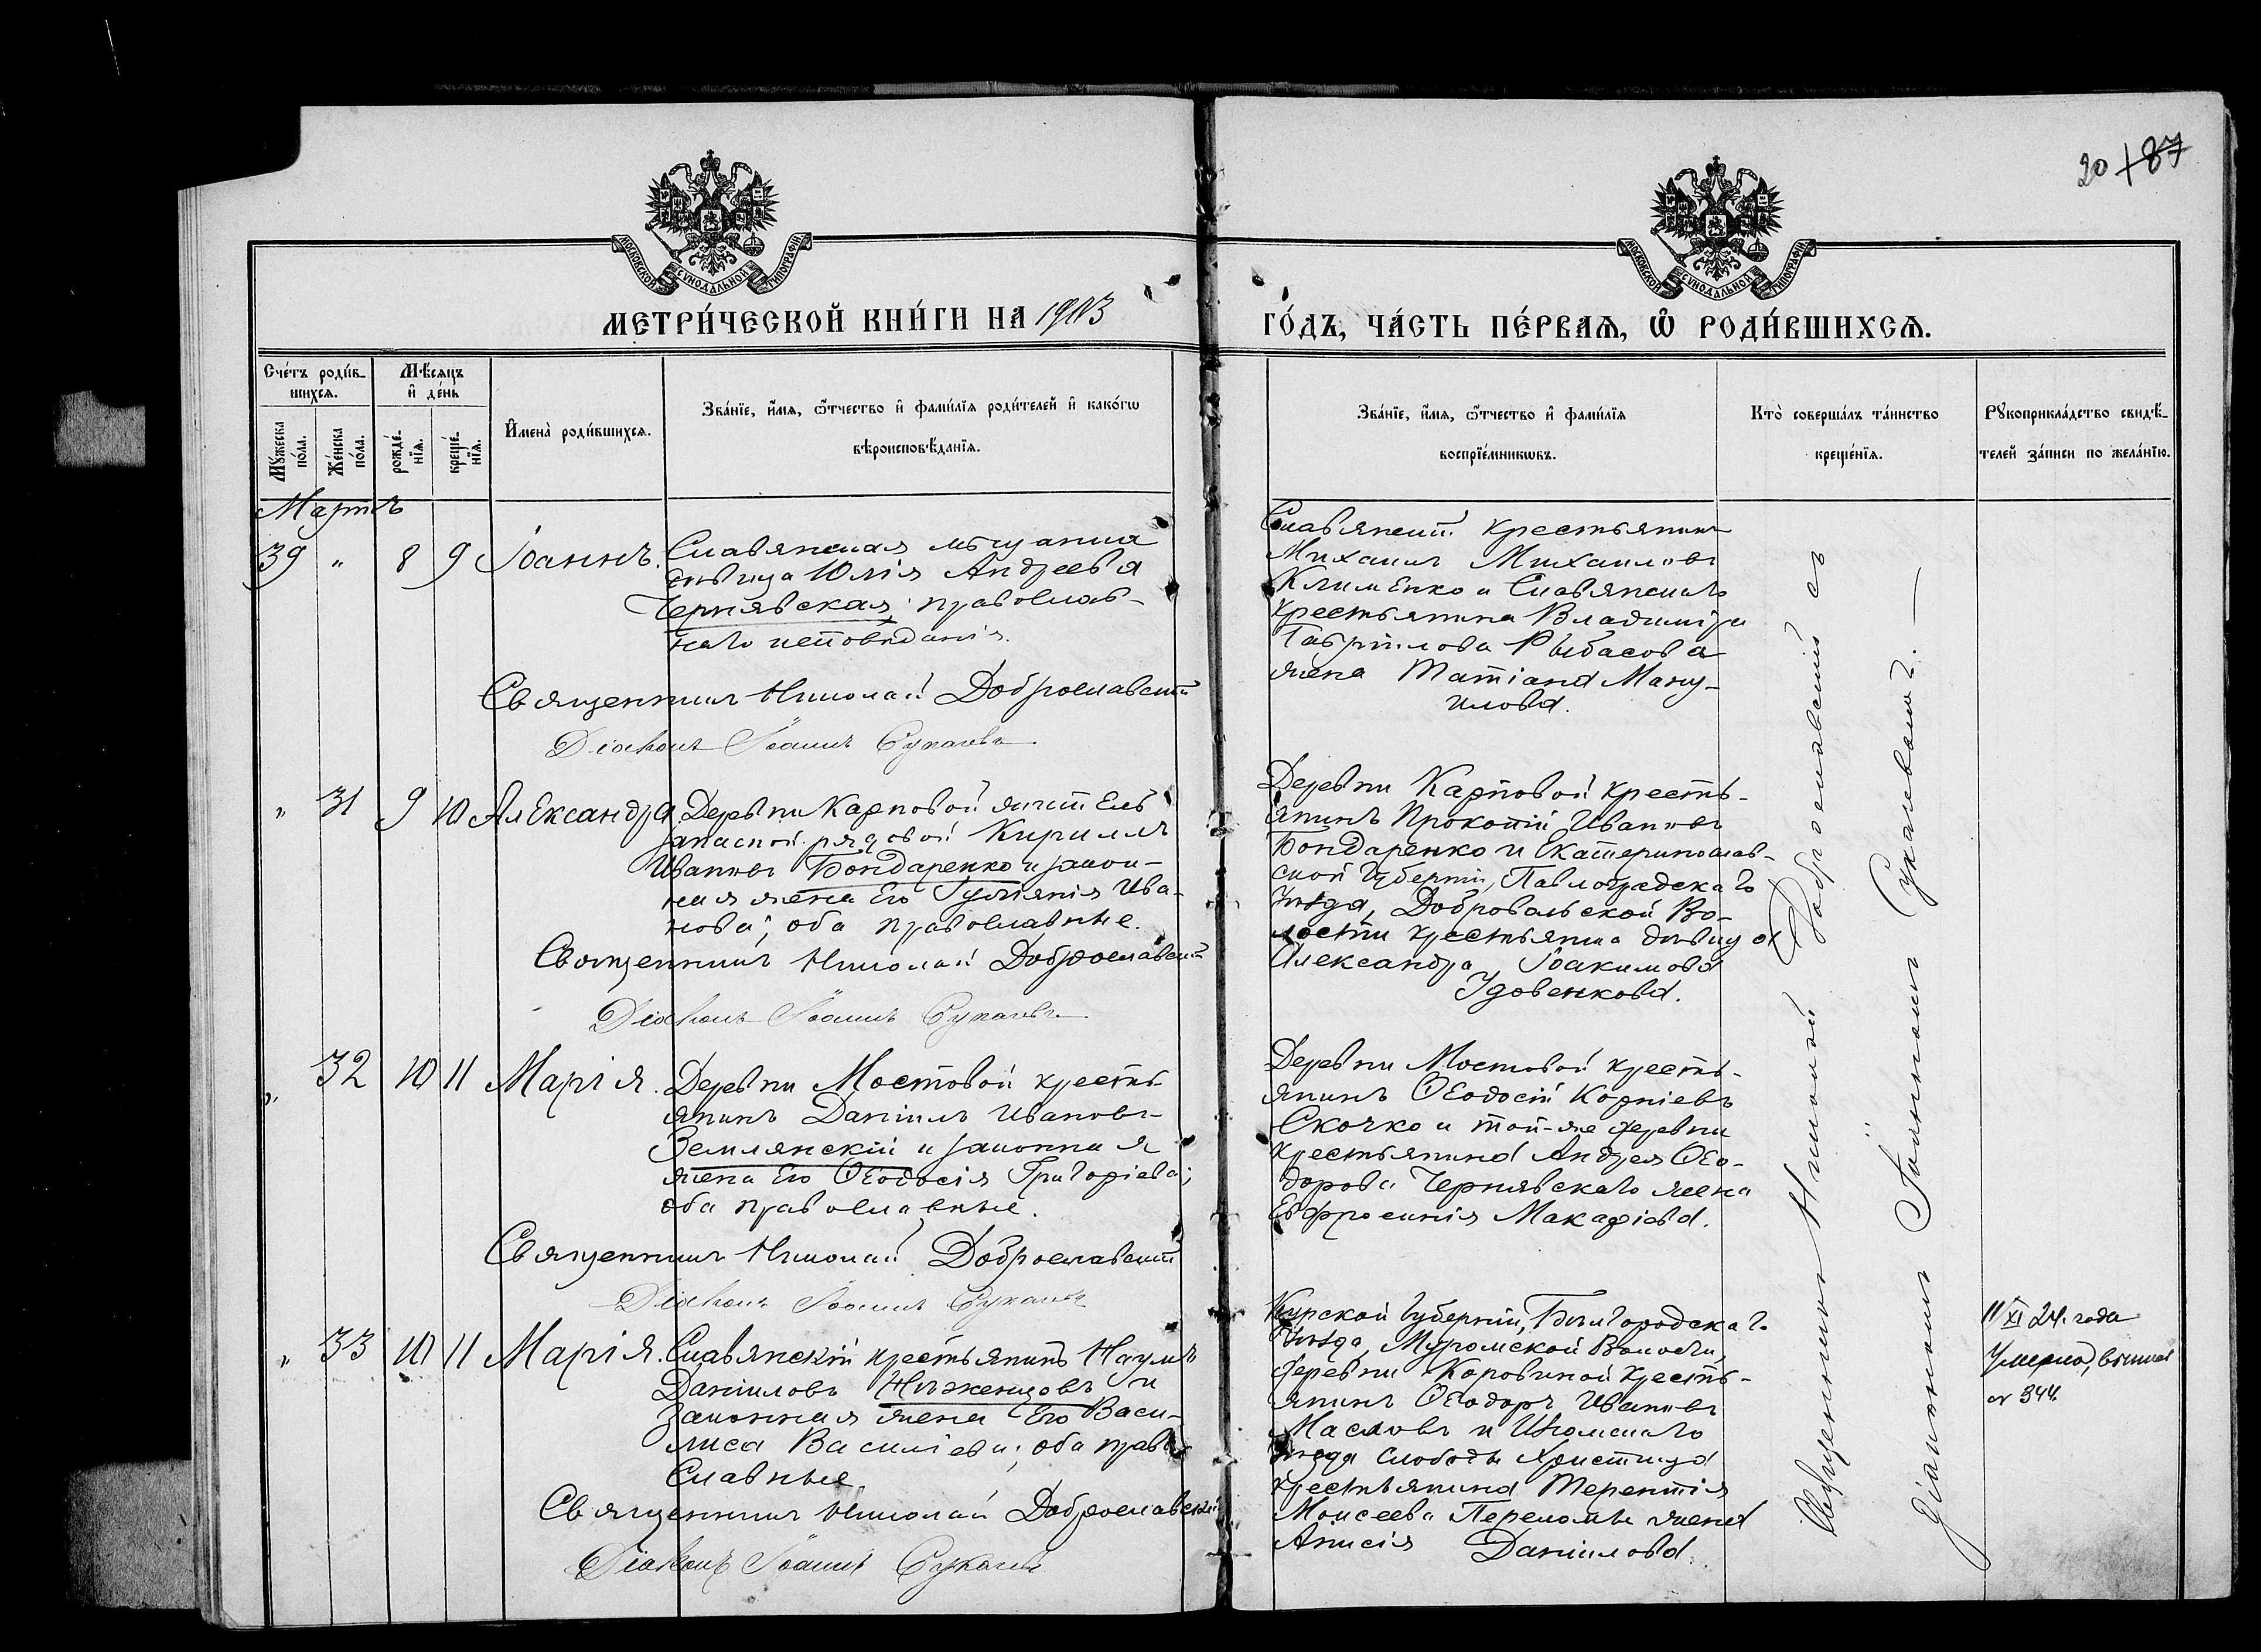 20 187
МОСКОВСКОЙ СѴНОДАЛЬНОЙ ТИПОГРАФІИ
МОСКОВСКОЙ СѴНОДАЛЬНОЙ ТИПОГРАФІИ
МЕТРИ́ЧЕСКОЙ КНИ́ГИ НА 1913
ГО́ДЪ, ЧА́СТЬ ПЕ́РВАЯ, Ѡ РОДИ́ВШИХСЯ.
Сче́тъ роди́в-
шихся.
Мѣ́сяцъ
и҆ де́нь
Мꙋ́жеска
по́ла.
Же́нска
по́ла.
рожде́-
нїѧ.
креще́-
нїѧ.
И҆мена̀ роди́вшихся.
Зва́нїе, и҆́мя, ѻ҆́тчество и҆ фами́лїя роди́телей и҆ како́гѡ
вѣроисповѣ́данїя.
Зва́нїе, и҆́мя, ѻ҆́тчество и҆ фами́лїя
воспрїе́мникѡвъ.
Кто̀ соверша́лъ та́инство
креще́нїя.
Рꙋкоприкла́дство свидѣ́-
телей за́писи по жела́нїю.
Мартъ
39 " 8 9 Іоаннъ.
Славянская мѣщанка
дѣвица Юлія Андреева
Чернявская; православ-
наго исповѣданія.
Священникъ Николай Доброславскій
Діаконъ Іоаннъ Сукачевъ
Славянскій крестьянинъ
Михаилъ Михаиловъ
Клименко и Славянскаго
крестьянина Владиміра
Гавріилова Рыбасова
жена Татіана Ману-
илова.
" 31 9 10 Александра.
Деревни Карповой житель
запасной рядовой Кириллъ
Ивановъ Бондаренко и закон-
ная жена его Іуліанія Ива-
нова; оба православные.
Священникъ Николай Доброславскій
Діаконъ Іоаннъ Сукачевъ
Деревни Карповой кресть-
янинъ Прокопій Ивановъ
Бондаренко и Екатеринослав-
ской губерніи, Павлоградскаго
уѣзда, Добровольской Во-
лости крестьянка дѣвица
Александра Іоакимова
Удовенкова.
" 32 10 11 Марія.
Деревни Мостовой кресть-
янинъ Даніилъ Ивановъ
Землянскій и законная
жена его Ѳеодосія Григоріева;
оба православные.
Священникъ Николай Доброславскій
Діаконъ Іоаннъ Сукачевъ
Деревни Мостовой кресть-
янинъ Ѳеодосій Корніевъ
Скочко и той-же деревни
крестьянина Андрея Ѳео-
дорова Чернявскаго жена
Евфросинія Макаріева.
" 33 10 11 Марія.
Славянскій крестьянинъ Наумъ
Даніиловъ Нѣженцовъ и
законная жена его Васи-
лиса Василіева; оба право-
славные.
Священникъ Николай Доброславскій
Діаконъ Іоаннъ Сукачевъ
Курской губерніи, Бѣлгородскаго
уѣзда, Муромской Волости,
деревни Коровиной кресть-
янинъ Ѳеодоръ Ивановъ
Масловъ и Изюмскаго
уѣзда слободы Христища
крестьянина Терентія
Моисеева жена
Анисія Даніилова.
Священникъ Николай Доброславскій съ
Діакономъ Іоанномъ Сукачевымъ.
11 XI 24. года
умерла,
№ 344.